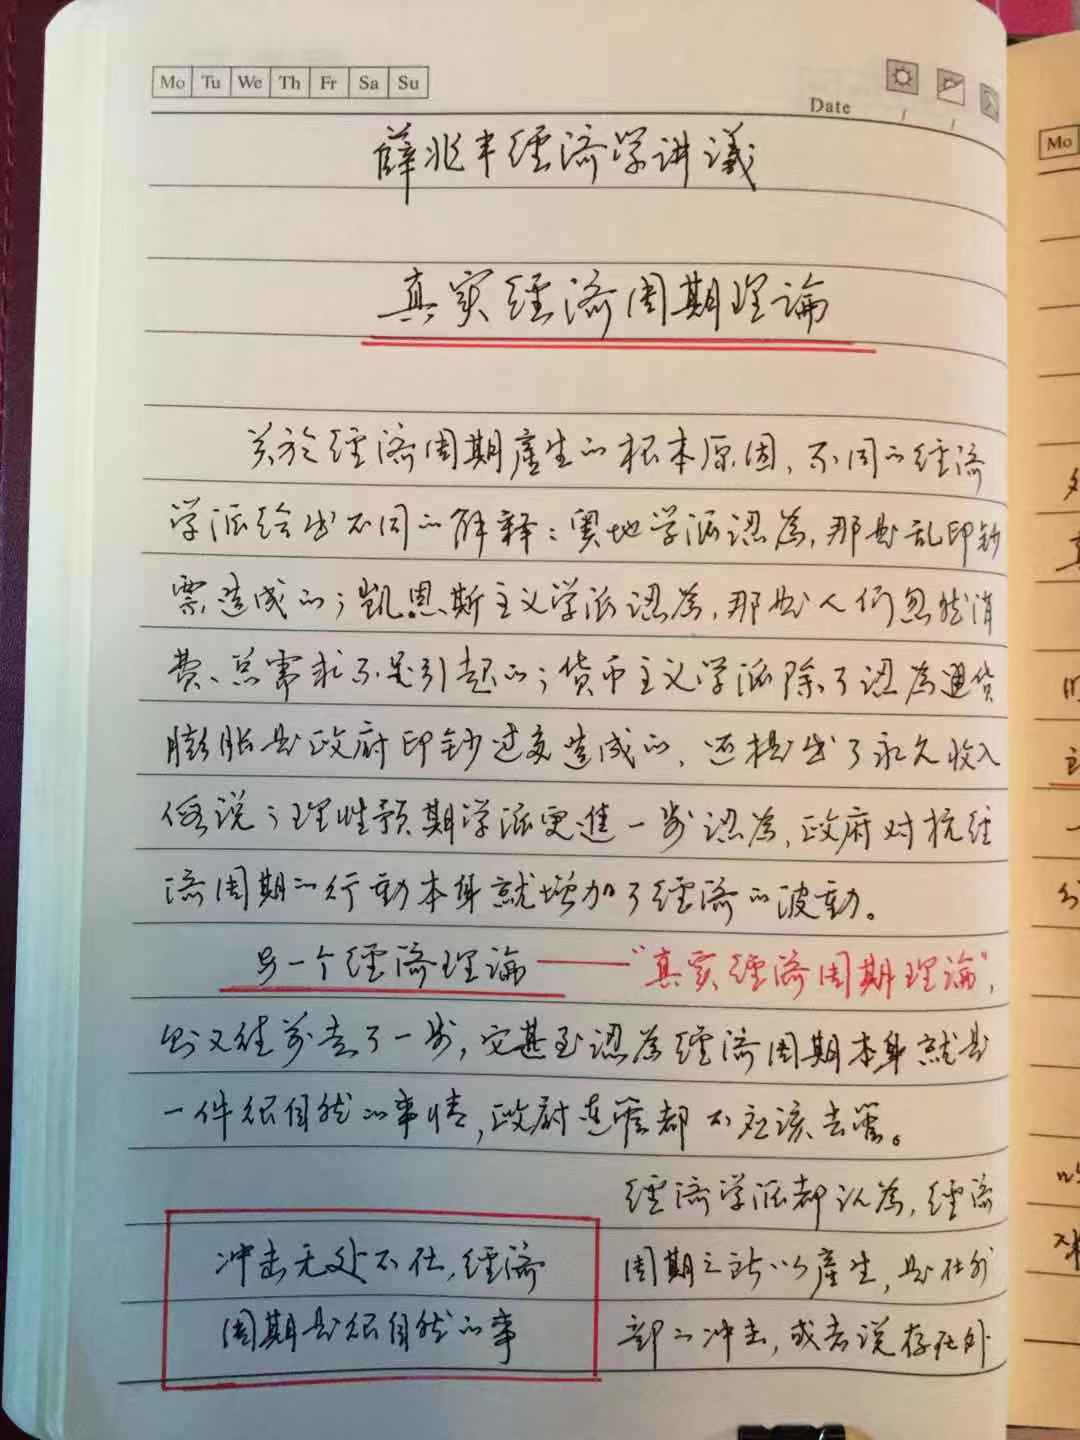 Mo Tu We Th Fr Sa Su
Date
薛兆丰經济学讲議
真实經济周期理論
关於經济周期產生的根本原因、不同的經济
学派给出不同的解释：奥地学派認為，那是乱印钞
票造成的；凯恩斯主义学派認為，那是人们忽然消
费、总需求不足引起的；货币主义学派除了認為通货
膨胀是政府印钞过度造成的，还提出了永久收入
假说；理性预期学派更進一步認為，政府对抗經
济周期的行動本身就增加了經济的波動。
另一个經济理論——“真实經济周期理論”，
则又往前走了一步，它甚至認為經济周期本身就是
一件很自然的事情，政府连管都不应该去管。
冲击无处不在，經济
周期是很自然的事
經济学派都认為，經济
周期之所以產生，是在外
部的冲击，或者说存在外
Mo